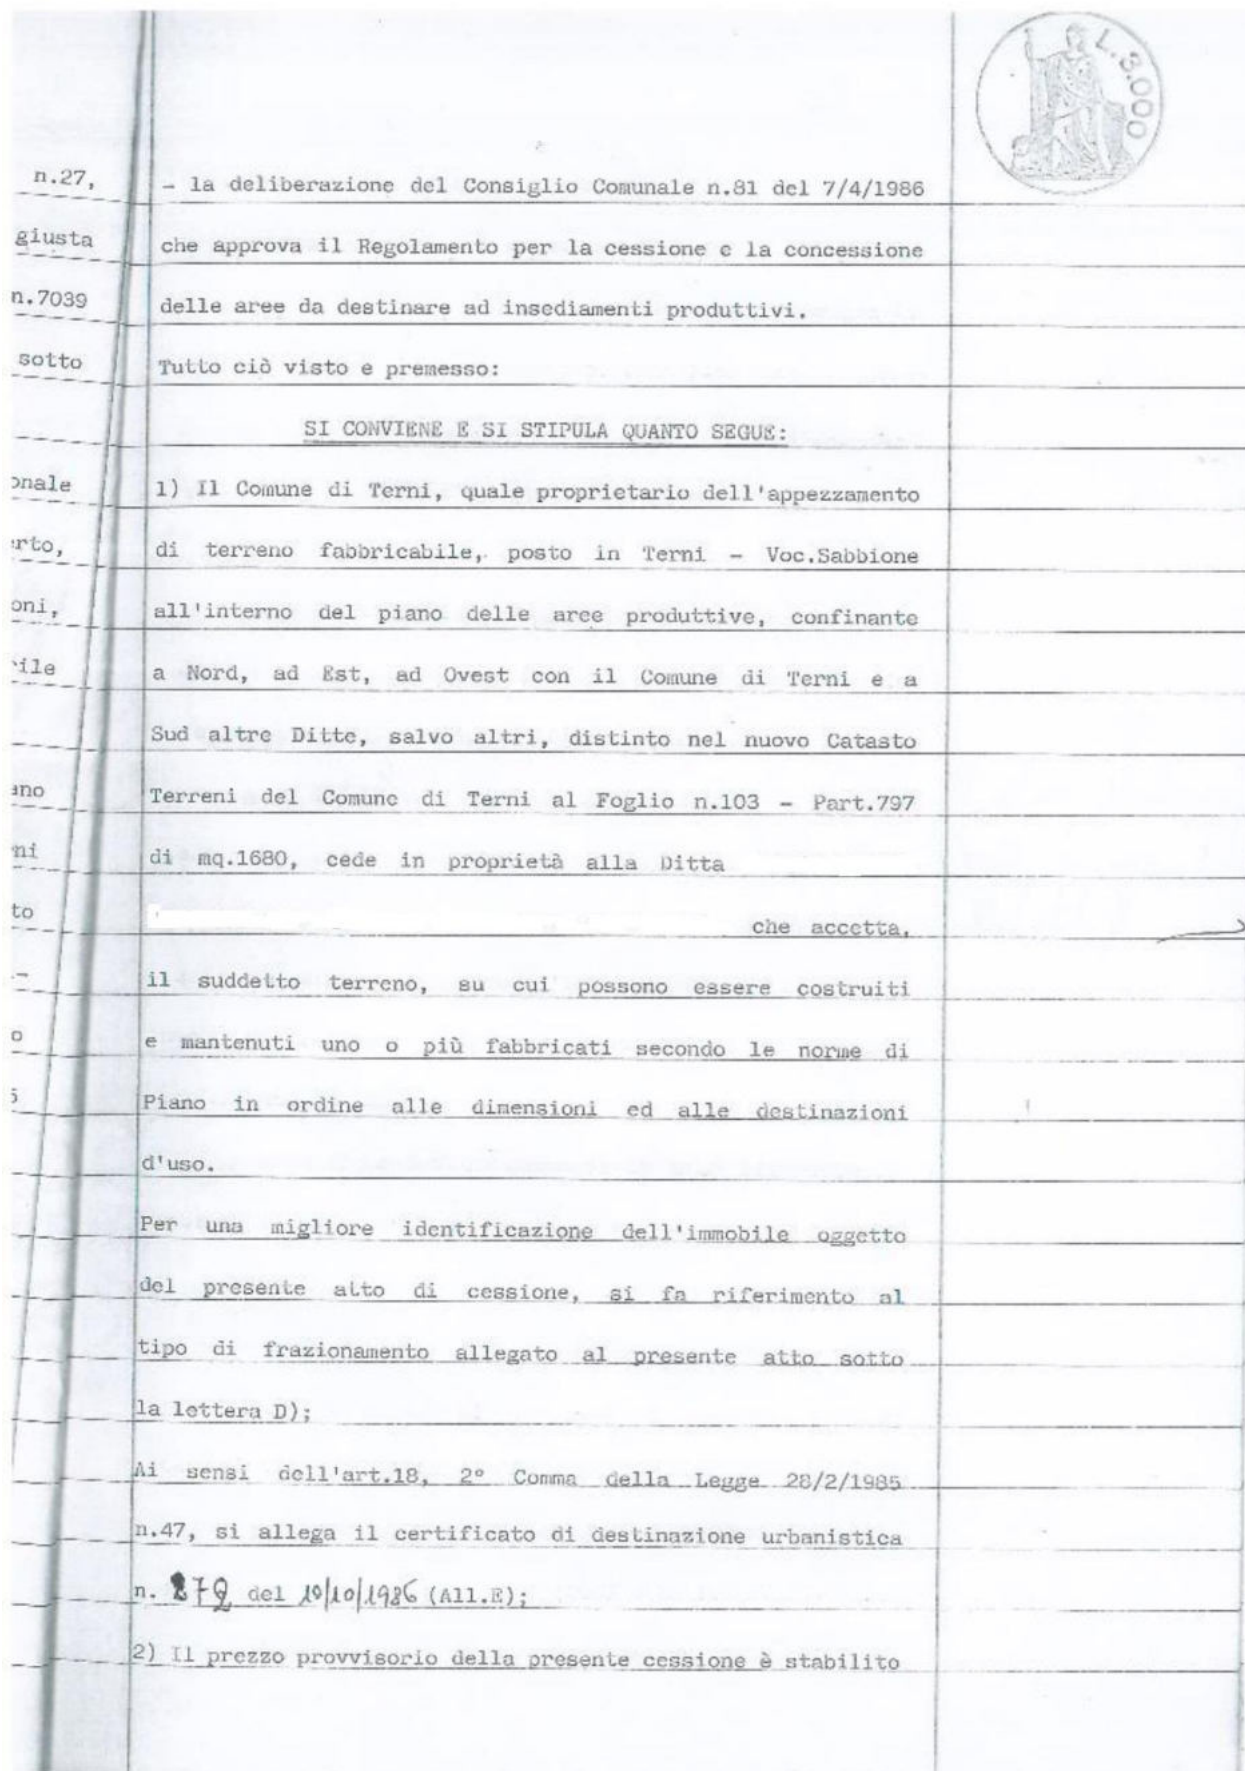 L.3.000
n.27,
giusta
n.7039
sotto
onale
erto,
oni,
ile
ano
ni
to
o
5
- la deliberazione del Consiglio Comunale n.81 del 7/4/1986
che approva il Regolamento per la cessione e la concessione
delle aree da destinare ad insediamenti produttivi.
Tutto ciò visto e premesso:
SI CONVIENE E SI STIPULA QUANTO SEGUE:
1) Il Comune di Terni, quale proprietario dell'appezzamento
di terreno fabbricabile, posto in Terni - Voc.Sabbione
all'interno del piano delle aree produttive, confinante
a Nord, ad Est, ad Ovest con il Comune di Terni e a
Sud altre Ditte, salvo altri, distinto nel nuovo Catasto
Terreni del Comune di Terni al Foglio n.103 - Part.797
di mq.1680, cede in proprietà alla Ditta
che accetta,
il suddetto terreno, su cui possono essere costruiti
e mantenuti uno o più fabbricati secondo le norme di
Piano in ordine alle dimensioni ed alle destinazioni
d'uso.
Per una migliore identificazione dell'immobile oggetto
del presente atto di cessione, si fa riferimento al
tipo di frazionamento allegato al presente atto sotto
la lettera D);
Ai sensi dell'art.18, 2° Comma della Legge 28/2/1985
n.47, si allega il certificato di destinazione urbanistica
n. del 10/10/1986 (All.E);
2) Il prezzo provvisorio della presente cessione è stabilito